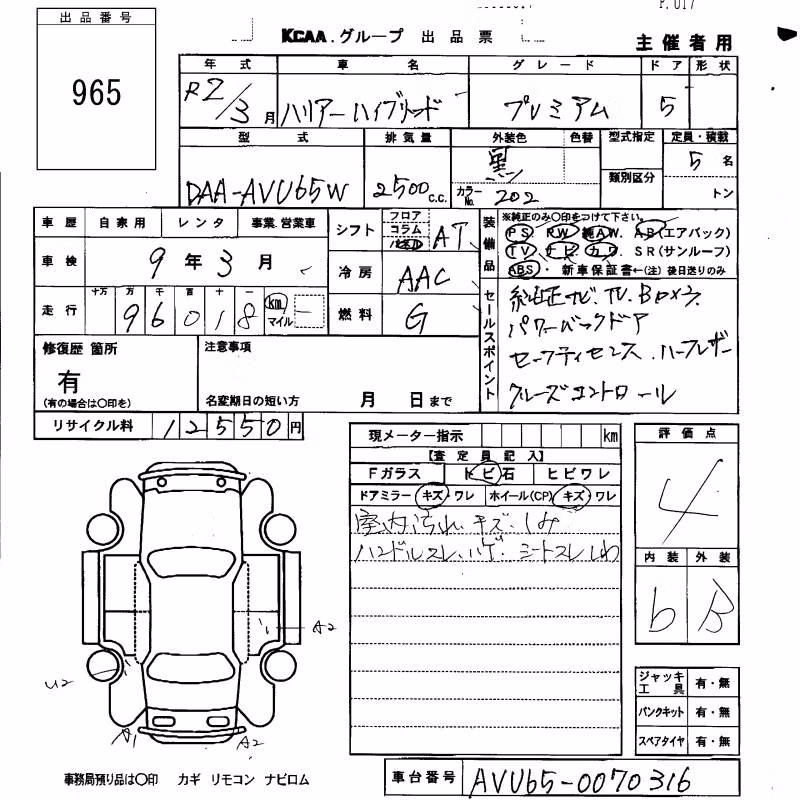 出品番号
965
KCAA.グループ 出品票
P.017
主催者用
年式 車名 グレード ドア 形状
R2/3月 ハリアーハイブリッド プレミアム 5
型式 排気量 外装色 色替 型式指定 定員・積載
DAA-AVU65W 2500 C.C. 黒 カラーNo. 202 類別区分 5名
トン
車歴 自家用 レンタ 事業.営業車 シフト フロア コラム パネル AT
装備品 ※純正のみ〇印をつけて下さい。
PS PW 純AW. AB(エアバック)
TV ナビ カワ SR(サンルーフ)
ABS・新車保証書←(注)後日送りのみ
車検 9年3月 冷房 AAC
走行 十万 万 千 百 十 一 96018 km マイル 燃料 G
セールスポイント 純正ナビ.TV.Bカメラ
パワーバックドア
セーフティセンス.ハーフレザー
クルーズコントロール
修復歴 箇所 注意事項
有
(有の場合は〇印を) 名変期日の短い方 月 日まで
リサイクル料 12550円
現メーター指示 km
【査定員記入】
Fガラス トビ石 ヒビワレ
ドアミラー キズ・ワレ ホイール(CP) キズ・ワレ
室内汚れ.キズ.しみ
ハンドルスレ.ハゲ.シートスレ しわ
評価点
4
内装 外装
b B
A2
U2
A1 A2
ジャッキ工具 有・無
パンクキット 有・無
スペアタイヤ 有・無
事務局預り品は〇印 カギ リモコン ナビロム
車台番号 AVU65-0070316